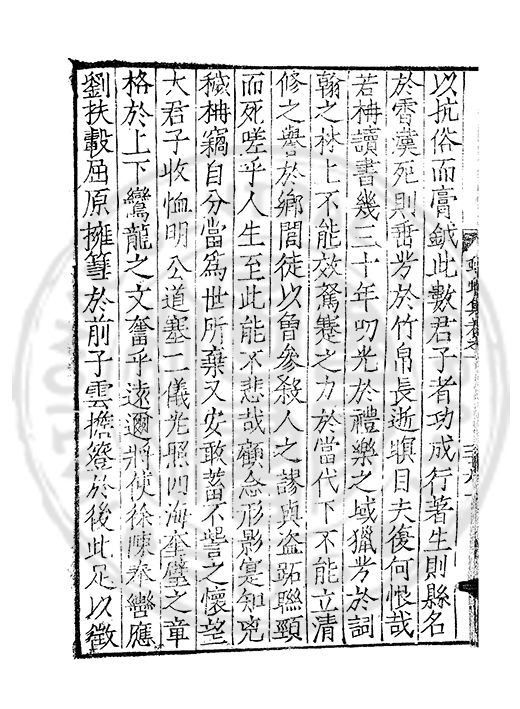 以抗俗而膏鉞此數君子者功成行著生則縣名
於霄漢死則垂芳於竹帛長逝瞑目夫復何恨哉
若柟讀書幾三十年叨光於禮樂之域獵芳於詞
翰之林上不能效駑蹇之力於當代下不能立清
修之譽於鄉閭徒以曾參殺人之謬與盜跖聯頸
而死嗟乎人生至此能不悲哉顧念形影寔知兇
穢柟竊自分當為世所棄又安敢蓄不訾之懷望
大君子收恤明公道塞二儀光照四海奎璧之章
格於上下鸞龍之文奮乎遠邇將使徐陳奉轡應
劉扶轂屈原擁篲於前子雲擔簦於後此足以徵